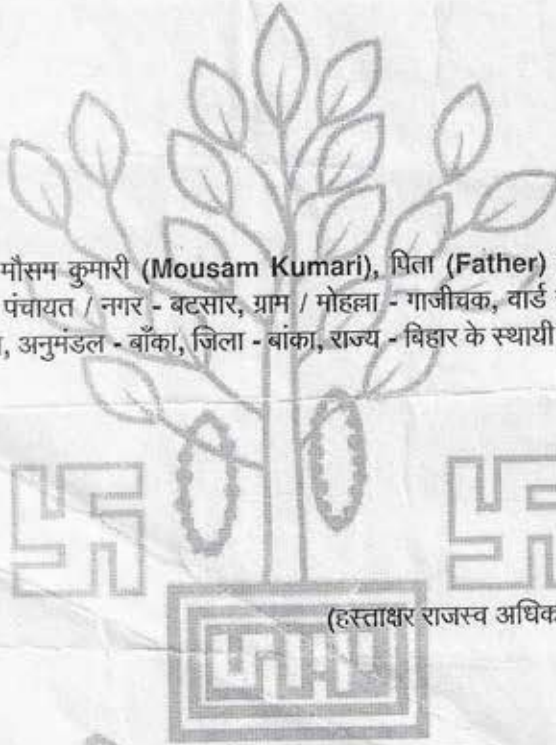 मौसम कुमारी (Mousam Kumari), पिता (Father)
पंचायत / नगर - बटसार, ग्राम / मोहल्ला - गाजीचक, वार्ड
, अनुमंडल - बाँका, जिला - बांका, राज्य - बिहार के स्थायी
(हस्ताक्षर राजस्व अधिक